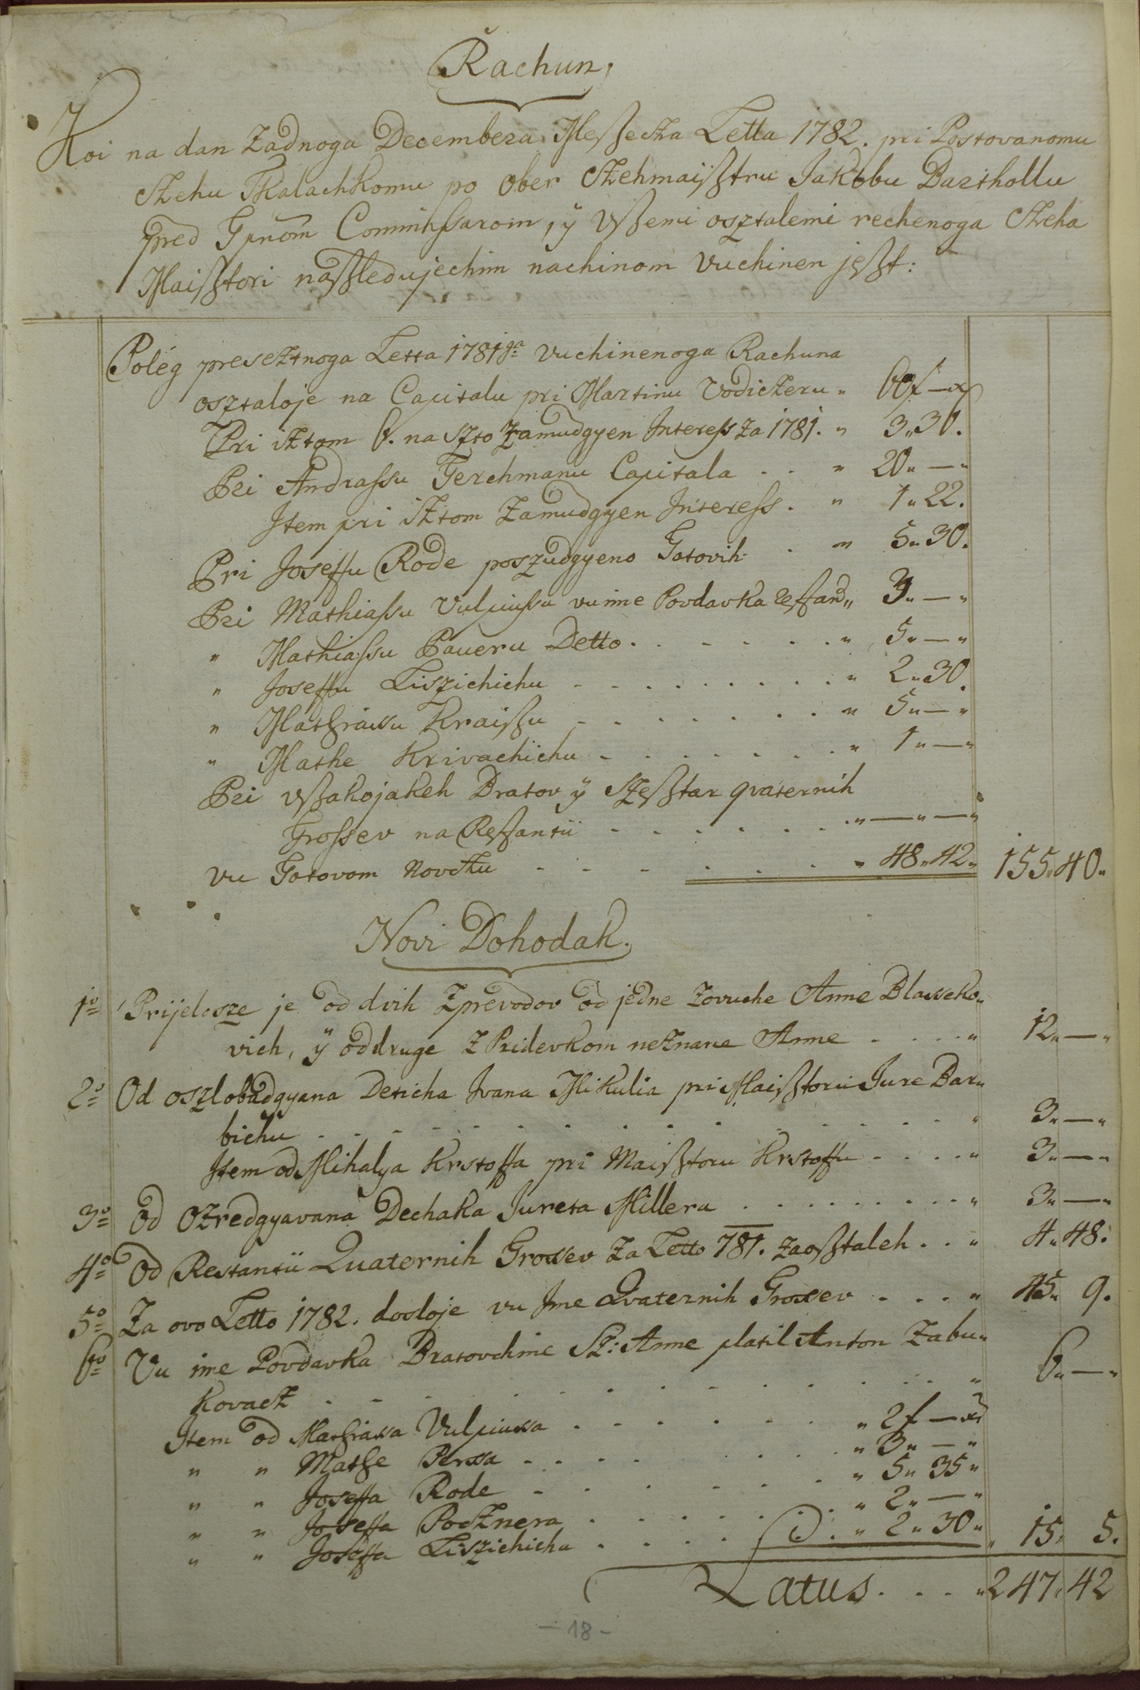 Rachun,
Koi na dan Zadnoga Decembera Meßecza Letta 1782. pri Postovanomu
Czehu Tkalachkomu po Ober Czehmaiſztru Jakobu Barthollu
pred Gnom Commihsarom, ÿ Vßemi osztalemi rechenoga Czeha
Maiſztori naßledujechim nachinom Vuchinen jeßt:
Poleg preseztnoga Letta 1781ga Vuchinenoga Rachuna
osztaloje na Capitalu pri Martinu Vodiczeru " 60f — x
Pri isztom 6. na szto zamudgyen Interess za 1781. " 3"30.
Pri Andrassu Ferchmanu Capitala . . " 20" — "
Item pri isztom zamudgyen Interess . " 1"22.
Pri Joseffu Rode poszudgyeno Gotovih . " 5"30.
Pri Mathiassu Vulpiussu vu ime Povdavka restand " 3" — "
" Mathiassu Paueru Detto . . . . . . " 5" — "
" Joseffu Liszichichu . . . . . . . " 2"30.
" Mathiassu Kraißu . . . . . . . " 5" — "
" Mathe Krivachichu . . . . . . " 1" — "
Pri vßakojakeh Bratov ÿ Szeßtar qvaternih
Grossev na Restantii . . . . . . . " — " — "
vu Gotovom Novczu . . . . . . " 48"42" 155"40"
Novi Dohodak.
1o Prijelosze je od dvih Zprevodov od jedne zovuche Anne Blasseko"
vich, ÿ od druge z Pridevkom neznane Anne . . . . " 12" — "
2o Od oszlobadgyana Deticha Ivana Mikulia pri Maisztoru Jure Bar"
bichu . . . . . . . . . . . . " 3" — "
Item od Mihalya Krstoffa pri Maisztoru Krstoffu . . . . " 3" — "
3o Od Ozredgyavana Dechaka Jureta Millera . . . . . . . " 3" — "
4o Od Restantii Quaternih Grossev Za Letto 781. zaoßtaleh . . " 4"48.
5o Za ovo Letto 1782. dosloje vu Ime Qvaternih Grossev . . . " 45" 9.
6to Vu ime Povdavka Bratovchine Sz: Anne platil Anton Zabu"
kovacz . . . . . . . . . . . . " 6" — "
Item od Mathiassa Vulpiussa . . . . . . " 2f — x
" " Mathe Perssa . . . . . . " 3" — "
" " Joseffa Rode . . . . . . " 5"35"
" " Joseffa Pocznera . . . . . . " 2" — "
" " Joseffa Liszichicha . . . . " 2"30" " 15" 5.
Latus . . . . " 247"42
- 18 -